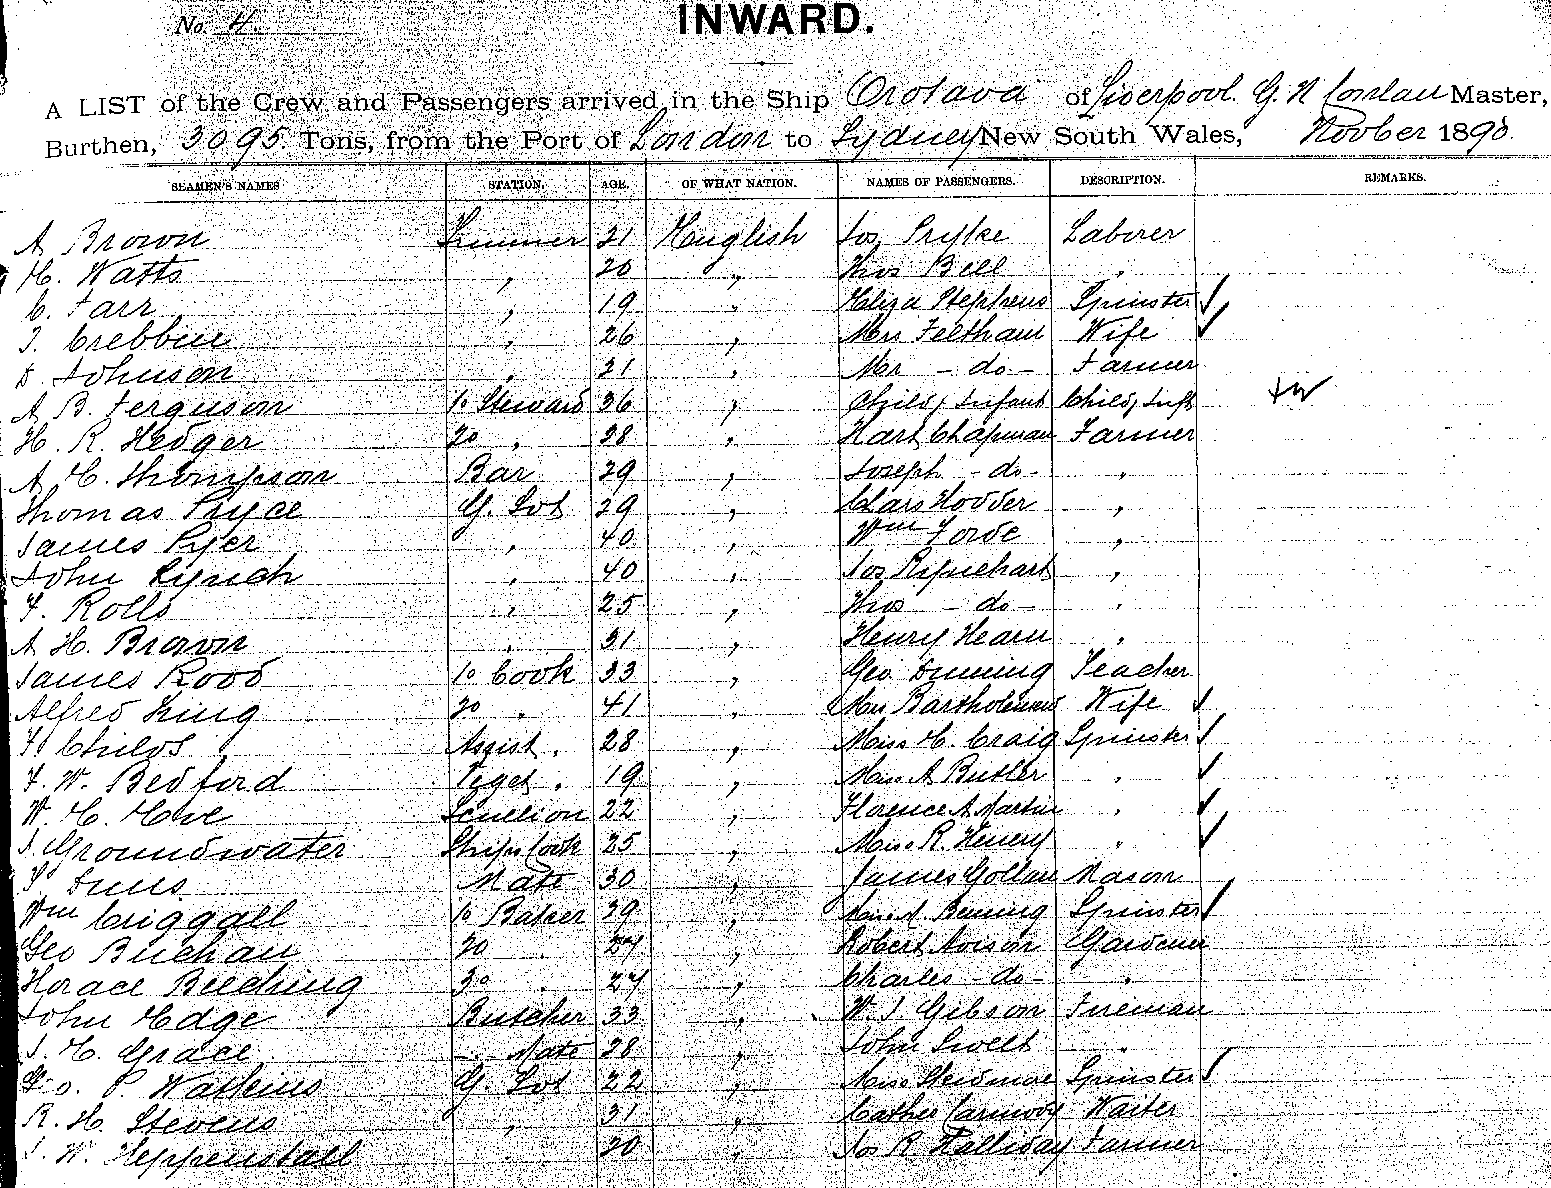 No. 4.
INWARD.
A LIST of the Crew and Passengers arrived in the Ship Orotava of Liverpool. G. N Conlan Master,
Burthen, 3095 Tons, from the Port of London to Sydney New South Wales, Novber 1890.
SEAMEN'S NAMES STATION. AGE. OF WHAT NATION. NAMES OF PASSENGERS. DESCRIPTION. REMARKS.
A Brown Trimmer 21 English Jos Pryke Laborer
H. Watts " 20 " Thos Bell "
C. Farr " 19 " Eliza Stephens Spinster ✓
J. Crebbin " 26 " Mrs Feltham Wife ✓
Johnson " 21 " Mr - do - Farmer
A B. Ferguson 1o Steward 36 " Child, Infant Child, Inft
H. R. Hedger 2o " 28 " Hart Chapman Farmer
A C. Thompson Bar 29 " Joseph - do - "
Thomas Pryce G. Svt 29 " Chars Hodder "
James Pyer " 40 " Wm Forde "
John Lynch " 40 " Jos Rynehart "
F. Rolls " 25 " Thos - do - "
A H. Brown " 31 " Henry Hearn "
James Rood 1o Cook 33 " Geo Dunning Teacher
Alfred King 2o " 41 " Mrs Bartholomew Wife ✓
F. Childs Assist. 28 " Miss C. Craig Spinster ✓
F. W. Bedford Veget. 19 " Miss A Butler " ✓
W. C. Scullion 22 " Florence A Martin " ✓
J. Groundwater Ships Cook 25 " Miss R. Henery " ✓
Mate 30 " James Gollan Mason
Wm Criggall 1o Baker 29 " Benning Spinster ✓
Geo Buchan 2o 27 " Robert Avison Gardener
Horace Beeching 3o " 27 " Charles - do - "
John Edge Butcher 33 " W. J Gibson Fireman
J. H. Grace " Mate 28 " John Swett "
Geo. P. Watkins G. Svt 22 " Miss Spinster ✓
R. H. Stevens " 31 " Waiter
J. W. Heppenstall " 20 " Jos R Halliday Farmer